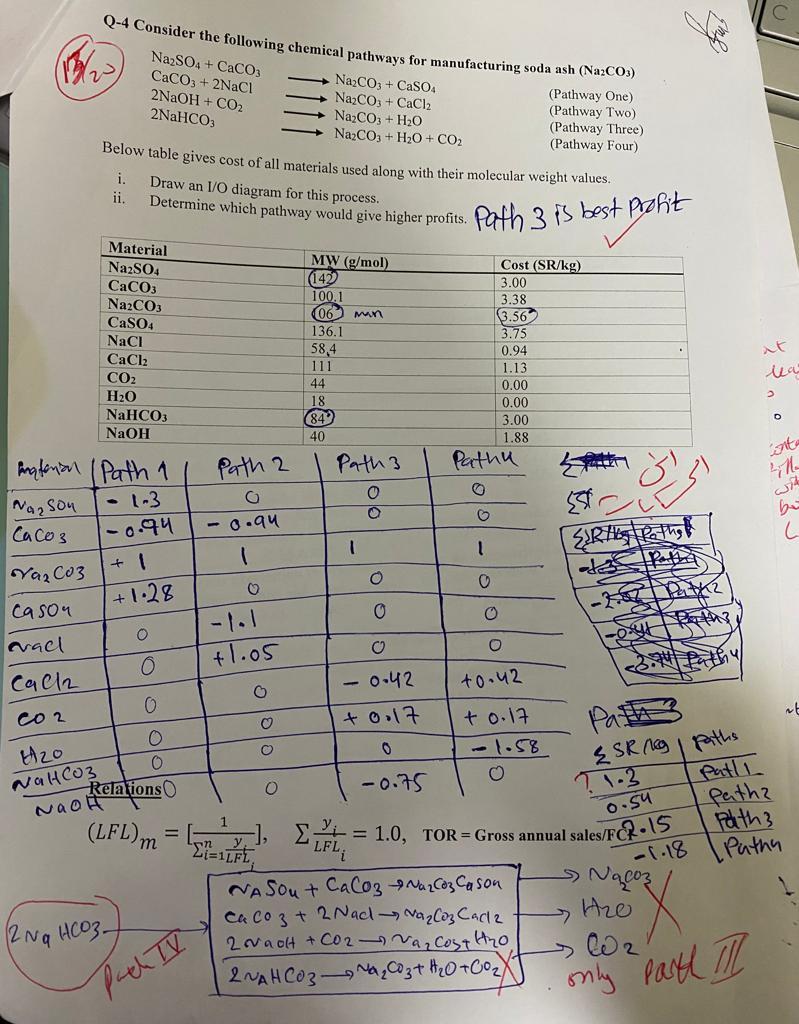 Q-4 Consider the following chemical pathways for manufacturing soda ash (Na₂CO₃)
13/20
Na₂SO₄ + CaCO₃ → Na₂CO₃ + CaSO₄ (Pathway One)
CaCO₃ + 2NaCl → Na₂CO₃ + CaCl₂ (Pathway Two)
2NaOH + CO₂ → Na₂CO₃ + H₂O (Pathway Three)
2NaHCO₃ → Na₂CO₃ + H₂O + CO₂ (Pathway Four)
Below table gives cost of all materials used along with their molecular weight values.
i. Draw an I/O diagram for this process.
ii. Determine which pathway would give higher profits. Path 3 is best profit
Material MW (g/mol) Cost (SR/kg)
Na₂SO₄ 142 3.00
CaCO₃ 100.1 3.38
Na₂CO₃ 106 3.56
CaSO₄ 136.1 3.75
NaCl 58.4 0.94
CaCl₂ 111 1.13
CO₂ 44 0.00
H₂O 18 0.00
NaHCO₃ 84 3.00
NaOH 40 1.88
Path 1 Path 2 Path 3 Path 4
Na₂SO4 - 1.3 0 0 0
CaCO3 - 0.94 - 0.94 0 0
Na₂CO3 + 1 1 1 1
CaSO4 + 1.28 0 0 0
NaCl 0 -1.1 0 0
CaCl2 0 +1.05 0 0
CO2 0 0 - 0.42 +0.42
H2O 0 0 + 0.17 + 0.17
NaHCO3 0 0 0 - 1.58
NaOH 0 0 -0.75 0
Σ SR/kg Paths
Path 1
Path 2
Path 3
Path 4
Σ SR/kg Paths
? 1.3 Path 1
0.54 Path 2
2.15 Path 3
-1.18 Path 4
Relations
(LFL)m = [1 / Σⁿi=1 yi/LFLi], Σ yi/LFLi = 1.0, TOR = Gross annual sales/FCI
2NaHCO3
Path IV
NASO4 + CaCO3 → Na₂CO3CaSO4
CaCO3 + 2NaCl → Na₂CO3CaCl2
2NaOH + CO2 → Na₂CO3+H2O
2NAHCO3 → Na₂CO3+H2O+CO2
Na2CO3
H2O
CO2
only path III